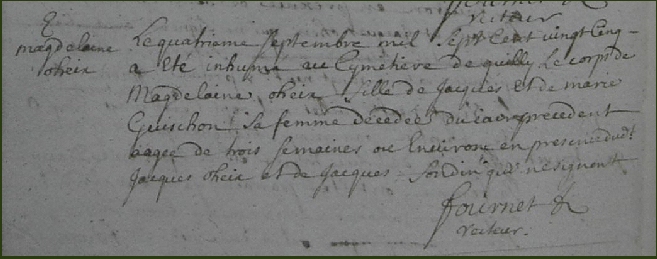 recteur
E
magdelaine
oheix
Le quatrieme Septembre mil Sept Cent vingt Cinq
a Eté inhumé au Cymetiere de quilly Le corps de
Magdelaine oheix fille de Jacques et de marie
Guischon Sa femme décedée du iour precedent
aagée de trois Semaines ou Environ en presence dudt
Jacques oheix et de Jacques qui ne signent
fournet &
recteur.